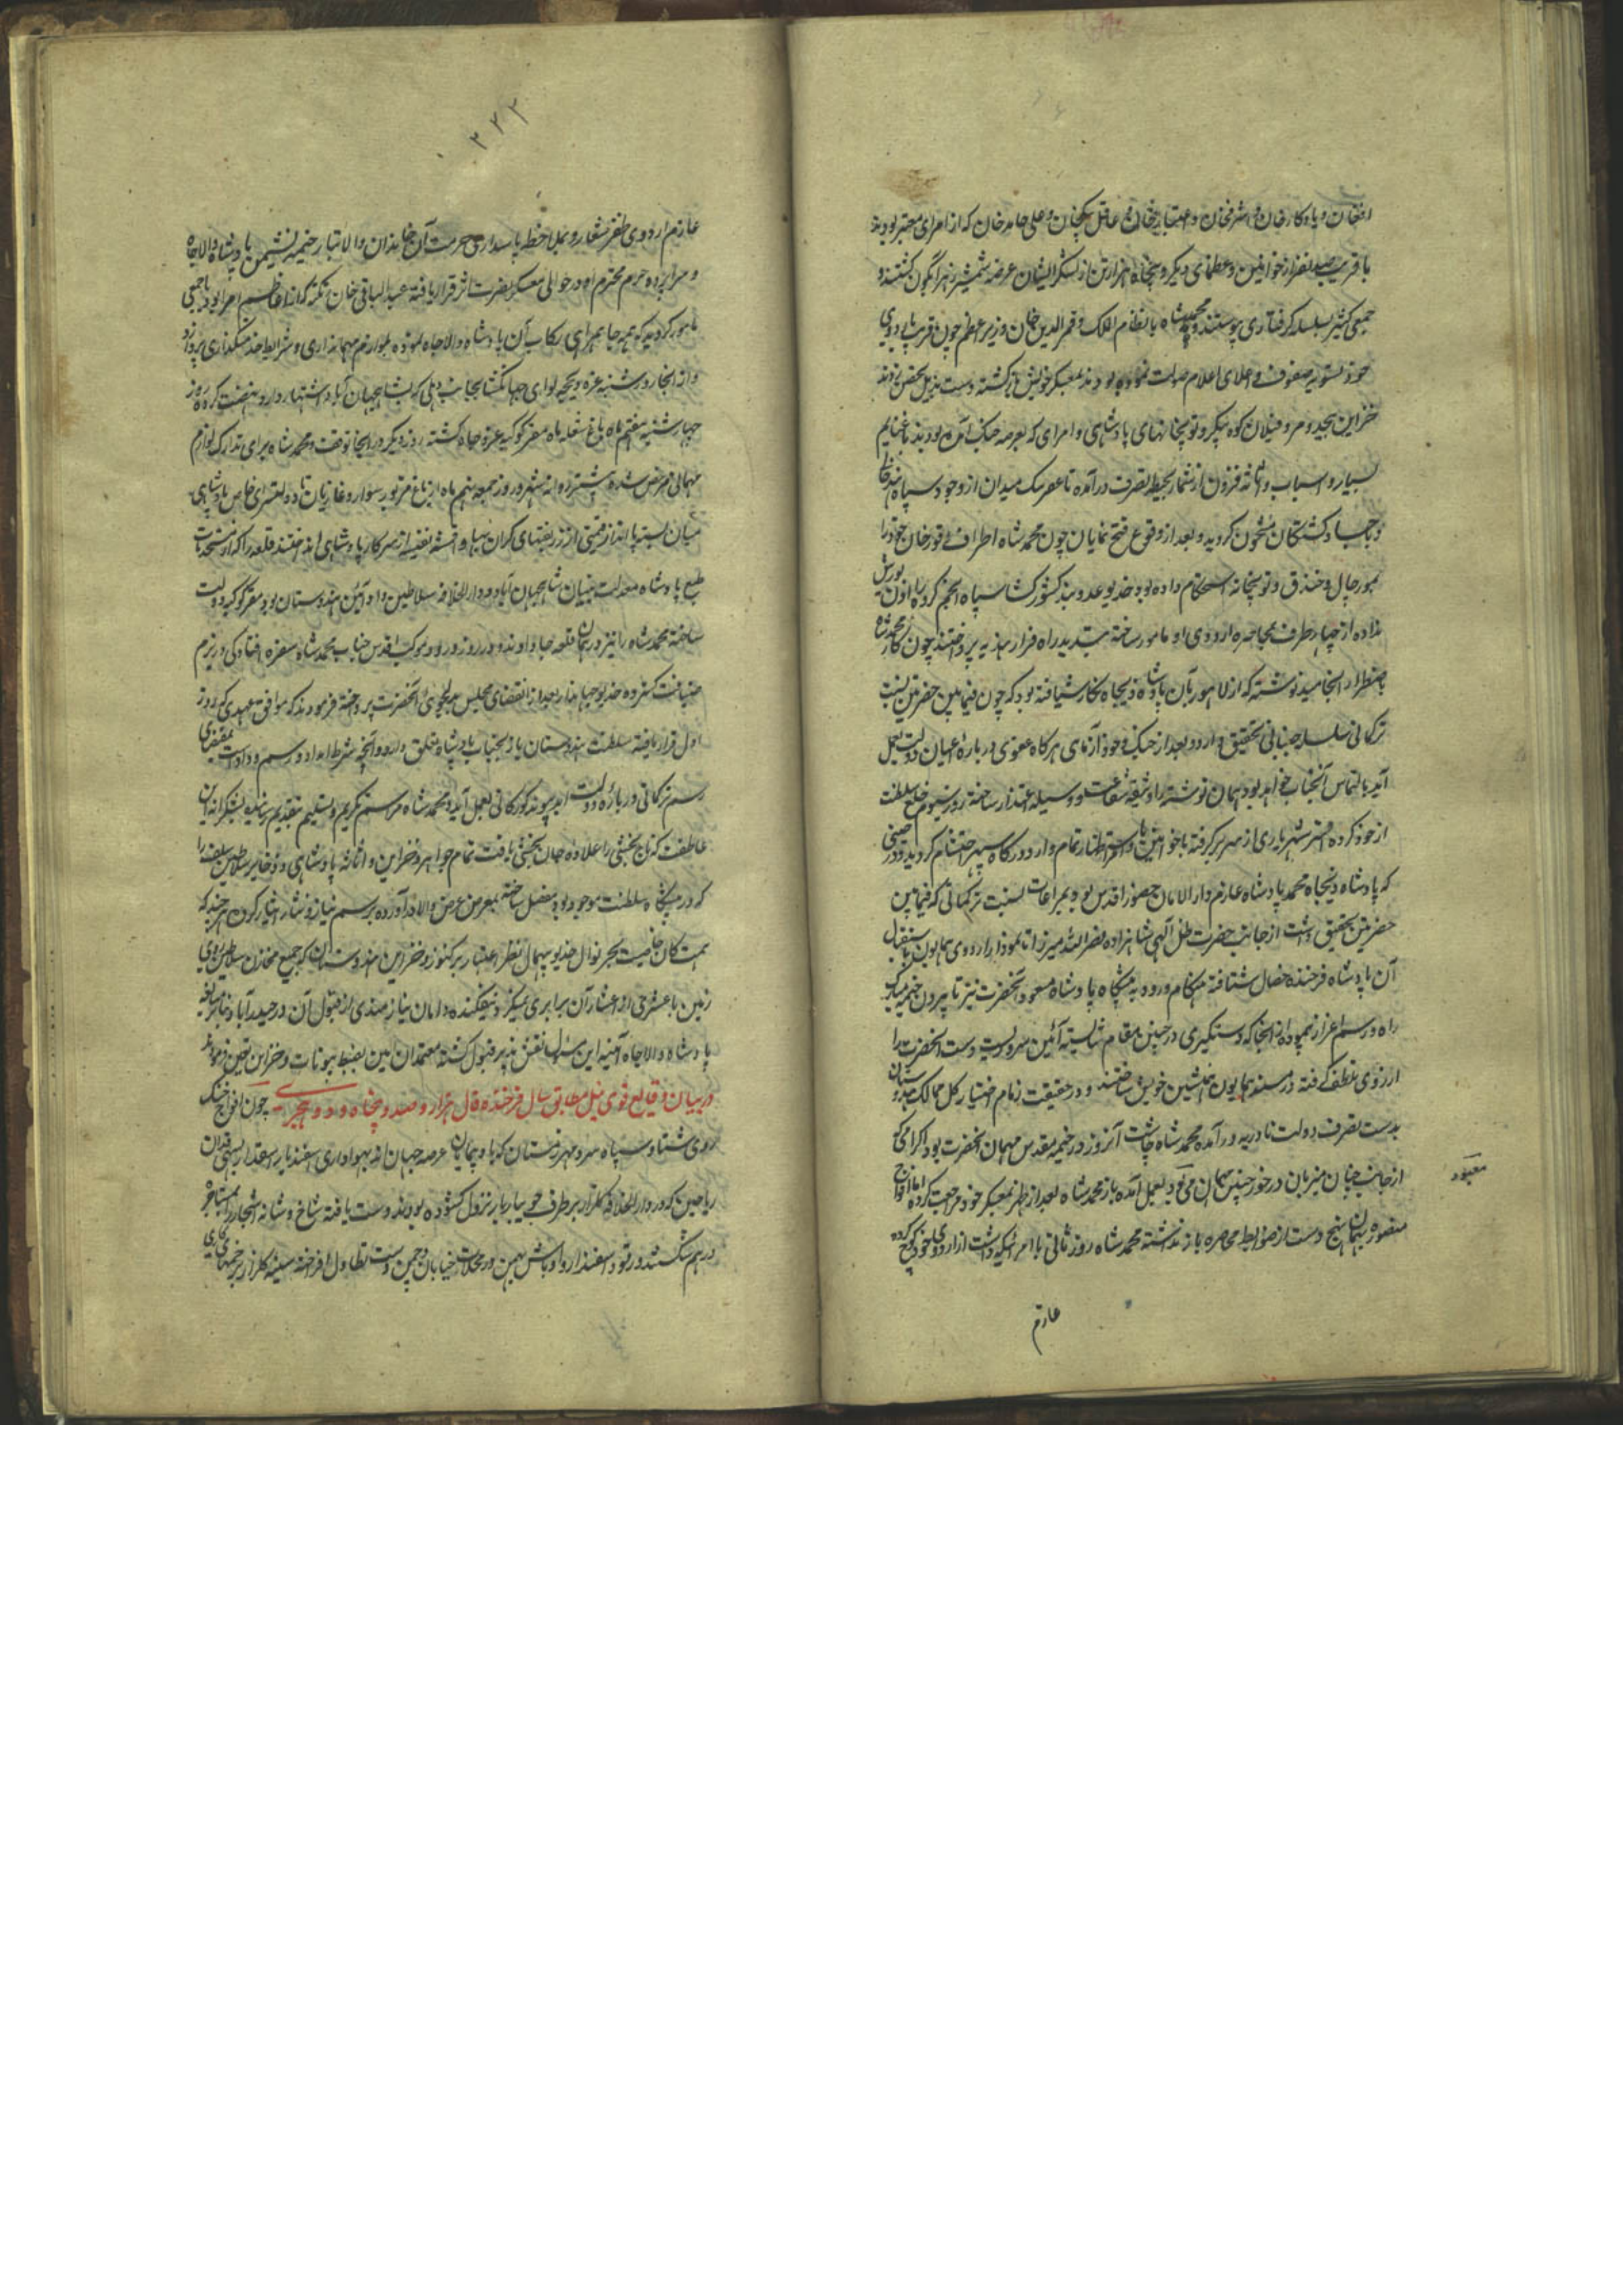 افغان و یادکار خان و اشرف خان و اعتبار خان و عاقل بیک خان و علی حامد خان که از امرای معتبر بودند
با قریب صد نفر از خوانین و عظمای دیگر و پنجاه هزار تن از لشکر ایشان عرضه شمشیر زهر آبگون گشتند و
جمعی کثیر بسلسله گرفتاری پیوستند و محمد شاه با نظام الملک و قمر الدین خان وزیر اعظم چون قریب باردوی
خود تسویه صفوف و اعلای اعلام صولت نموده بودند بمعسکر خویش بازگشته دست بذیل تحصن زدند
خزاین بیحد و مر و فیلان کوه پیکر و توپخانهای پادشاهی و امرای که بعرصه جنگ آمده بودند با غنایم
بسیار و اسباب و اثاثه فزون از شمار بحیطه تصرف درآمده تا عصر تنگ میدان از وجود سپاه هند خالی
و بجساد کشتگان مشحون گردید و بعد از وقوع فتح نمایان چون محمد شاه اطراف اوردوی خود را
بمورچال و خندق و توپخانه استحکام داده بود خدیو عدو بند کشورگشا سپاه انجم کروه را اذن یورش
نداده از چهار طرف بمحاصره اردوی او مامور ساخته بتسدید راه فرار هند یه پرداختند چون کار محمد شاه
باضطرار انجامید نوشته که از لاهور بآن پادشاه ذیجاه نگارش یافته بود که چون فیمابین حضرتین نسبت
ترکمانی سلسله جنبانی تحقیق دارد و بعد از جنگ و خود آزمای هرگاه عفوی درباره اعیان دولت بعمل
آید بالتماس آنجناب خواهد بود همان نوشته را وثیقه شفاعت و وسیله اعتذار ساخته روز سیوم خلع سلطنت
از خود کرده افسر شهریاری از سر برگرفته با خوانین و امرا باستظهار تمام وارد درگاه سپهر احتشام گردید و در حینی
که پادشاه ذیجاه محمد پادشاه عازم دار الامان حضور اقدس بود بمراعات نسبت ترکمانی که فیمابین
حضرتین تحقیق داشت از جانب حضرت ظل آلهی شاهزاده نصر الله میرزا تا بیرون اردوی همایون باستقبال
آن پادشاه فرخنده خصال شتافته هنگام ورود به پیشگاه پادشاه مسعود آنحضرت نیز تا بیرون خیمه مبارک
راه و رسم اعزاز پیموده از آنجا که دستگیری در چنین مقام شایسته آئین سروریست دست آنحضرت را
از روی تلطف گرفته در مسند همایون همنشین خویش ساختند و در حقیقت زمام اختیار کل ممالک هندوستان
بدست تصرف دولت نادریه درآمده محمد شاه چاشت آنروز در خیمه مقدس مهمان آنحضرت بود اکرامی که
از جانب چنان میزبان درخور چنین مهمان می بود بعمل آمده باز محمد شاه بعد از ظهر بمعسکر خود مراجعت کرده اما افواج
منصوره بهمان نهج دست از ضوابط محاصره باز نداشته محمد شاه روز ثانی با امرائیکه داشت از اردوی خود کوچ کرده
معبود
عازم
۲۲۳
عازم اردوی ظفر شعار و بملاحظه پاسداری حرمت آن خاندان والاتبار خیمه نشیمن پادشاه والاجاه
و سراپرده حرم محترم او در حوالی معسکر نصرت اثر قرار یافته عبدالباقی خان زنگنه که از اعاظم امرا بود با جمعی
مامور گردید که همه جا بهمراهی رکاب آن پادشاه والاجاه نموده بلوازم مهمانداری و شرایط خدمتگذاری پردازد
و از آنجا روز شنبه غره ذیحجه لوای جهانگشا بجانب دهلی که بشاهجهان آباد اشتهار دارد نهضت کرده روز
چهارشنبه هفتم ماه باغ شعله ماه مقر کوکبه عز و جاه گشته روز دیگر در آنجا توقف و محمد شاه برای تدارک لوازم
مهمانی مرخص شده پیشتر روانه شهر و روز جمعه نهم ماه از باغ مزبور سوار و غازیان تا دولتسرای خاص پادشاهی
میان بسته پا انداز قیمتی از زربفتهای گران بها و اقمشه نفیسه از سرکار پادشاهی انداختند قلعه را که از مستحدثات
طبع پادشاه معدلت بنیان شاهجهان آباد و دار الخلافه سلاطین داد آئین هندوستان بود مقر کوکبه دولت
ساخته محمد شاه را نیز در همان قلعه جا دادند و در روز ورود موکب اقدس جناب محمد شاه سفره افتادگی در بزم
ضیافت گسترده خدیو جهاندار بعد از انقضای مجلس بدلجوئی آنحضرت پرداخته فرمودند که موافق تعهدی که روز
اول قرار یافته سلطنت هندوستان باز بجناب پادشاه متعلق دارد و آنچه شرط امداد و رسم وداد است بمقتضای
رسم ترکمانی درباره دولت ابد پیوند گورکانی بعمل آید و محمد شاه مراسم تکریم و تسلیم بتقدیم رسانیده بشکرانه این
عاطفت که تاج بخشی را علاوه جان بخشی یافت تمام جواهر و خزاین و اثاثه پادشاهی و ذخایر سلاطین سلف را
که در پیشگاه سلطنت موجود بود مفصل ساخته بمعرض عرض والا درآورده برسم نیاز و نثار ایثار کردن هر چند که
همت کان خاصیت بحر نوال خدیو بیهمال نظر اعتبار بر کنوز و خزاین هندوستان که جمیع مخازن سلاطین روی
زمین با عشری از اعشار آن برابری نمیکرد نیفکنده دامان نیازمندی از قبول آن درچید اما بنا بر مبالغه
پادشاه والاجاه آخر این سئوال نقش پذیر قبول گشته معتمدان امین بضبط بیوتات و خزاین تعیین فرمودند
در بیان وقایع قوی ئیل مطابق سال فرخنده فال هزار و صد و پنجاه و دو هجری چون افواج خنک
روی شتا و سپاه سرد مهر زمستان که باد پیمایان عرصه جهان اند بهواداری اسفندیار اسفندار بهمن
ریاحین که در دار الخلافه گلزار بر طرف جویبار بار نزول گشوده بودند دست یافته شاخ و شانه اشجار را
درهم شکستند و رنود اسفندار و اوباش بهمن در محلات خیابان و چمن دست تطاول افراخته سینه گلزار بزخمهای کاری